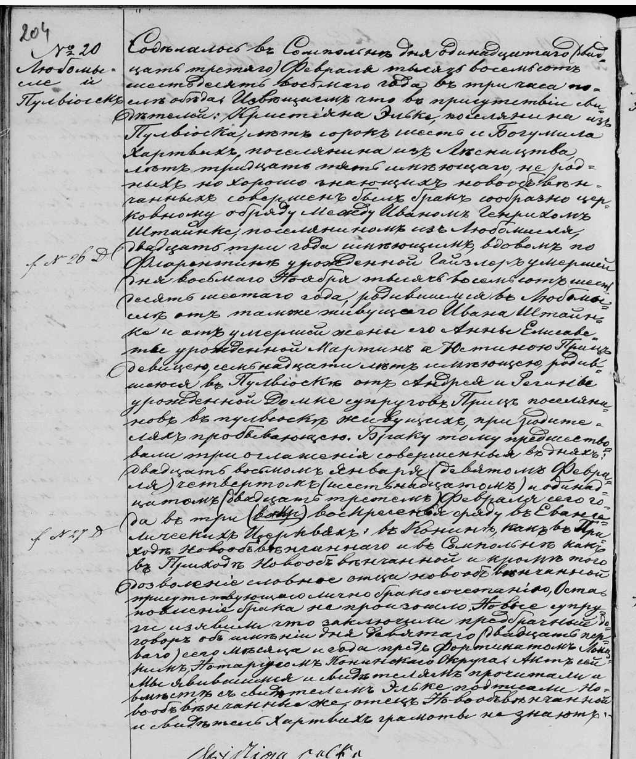 204
№ 20
Любомы-
сле и
Пулвіоскъ
Содѣялось въ Семпольнѣ дня одинадцатаго (двад-
цать третяго) Февраля тысяч восемьсотъ
шестьдесятъ восьмаго года, въ три часа по-
слѣ обѣда; Извѣщаемъ что въ присутствіи сви-
дѣтелей: Кристіяна Эльке, поселянина изъ
Пулвіоска, лѣтъ сорокъ шесть и Богумила
Хартвихъ, поселянина изъ
лѣтъ тридцать пять имѣющаго, не род-
ныхъ но хорошо знающихъ новообвѣн-
чанныхъ совершенъ былъ бракъ сообразно цер-
ковному обряду между Иваномъ Генрихомъ
Штайнке, поселяниномъ изъ Любомысля,
двадцать три года имѣющимъ, вдовомъ по
Флорентинѣ урожденной Гайзлеръ умершей
f № 26 D
дня восьмаго Ноября тысяч восемьсотъ шесть
десять шестаго года, родившимся въ Любомы-
слѣ отъ тамже живущаго Ивана Штайн-
ке и отъ умершей жены его Анны Елисаве-
ты урожденной Мартинъ а Юстиною Прицъ
девицею, семьнадцати лѣтъ имѣющею, родив-
шеюся въ Пулвіоскѣ отъ Андрея и Регины
урожденной Домке супруговъ Прицъ поселяни-
новъ, въ Пулвіоскѣ живущихъ, при родите-
ляхъ пробывающею. Браку тому предшество-
вали три оглашенія совершенныя въ дняхъ:
двадцать восьмомъ Января (девятомъ Февра-
ля) четвертомъ (шестьнадцатомъ) и одинад-
цатомъ (двадцать третемъ) Февраля сего го-
да въ три воскресенія сряду въ Еванге-
f № 27 D
лическихъ Церквахъ: въ Конинѣ, какъ въ При-
ходѣ Новообвѣнчаннаго и въ Семпольнѣ какъ
въ Приходѣ Новообвѣнчанной и кромѣ того
дозволеніе словное отца новообвѣнчанной
присутствующаго лично бракосочетанію, Оста-
новленія брака не произошло, Новые супру-
ги изявили что заключили предбрачный до-
говоръ объ имѣніи дня девятаго (двадцать пер-
ваго) сего мѣсяца и года предъ Фортунатомъ
Нотаріусомъ Конинскаго Округа; Актъ сей
Мы явившимся и свидѣтелямъ прочитали и
вмѣстѣ съ свидѣтелемъ Эльке подписали Но-
вообвѣнчанные же, отецъ Новообвѣнчанной
и свидѣтель Хартвихъ грамоты не знаютъ.